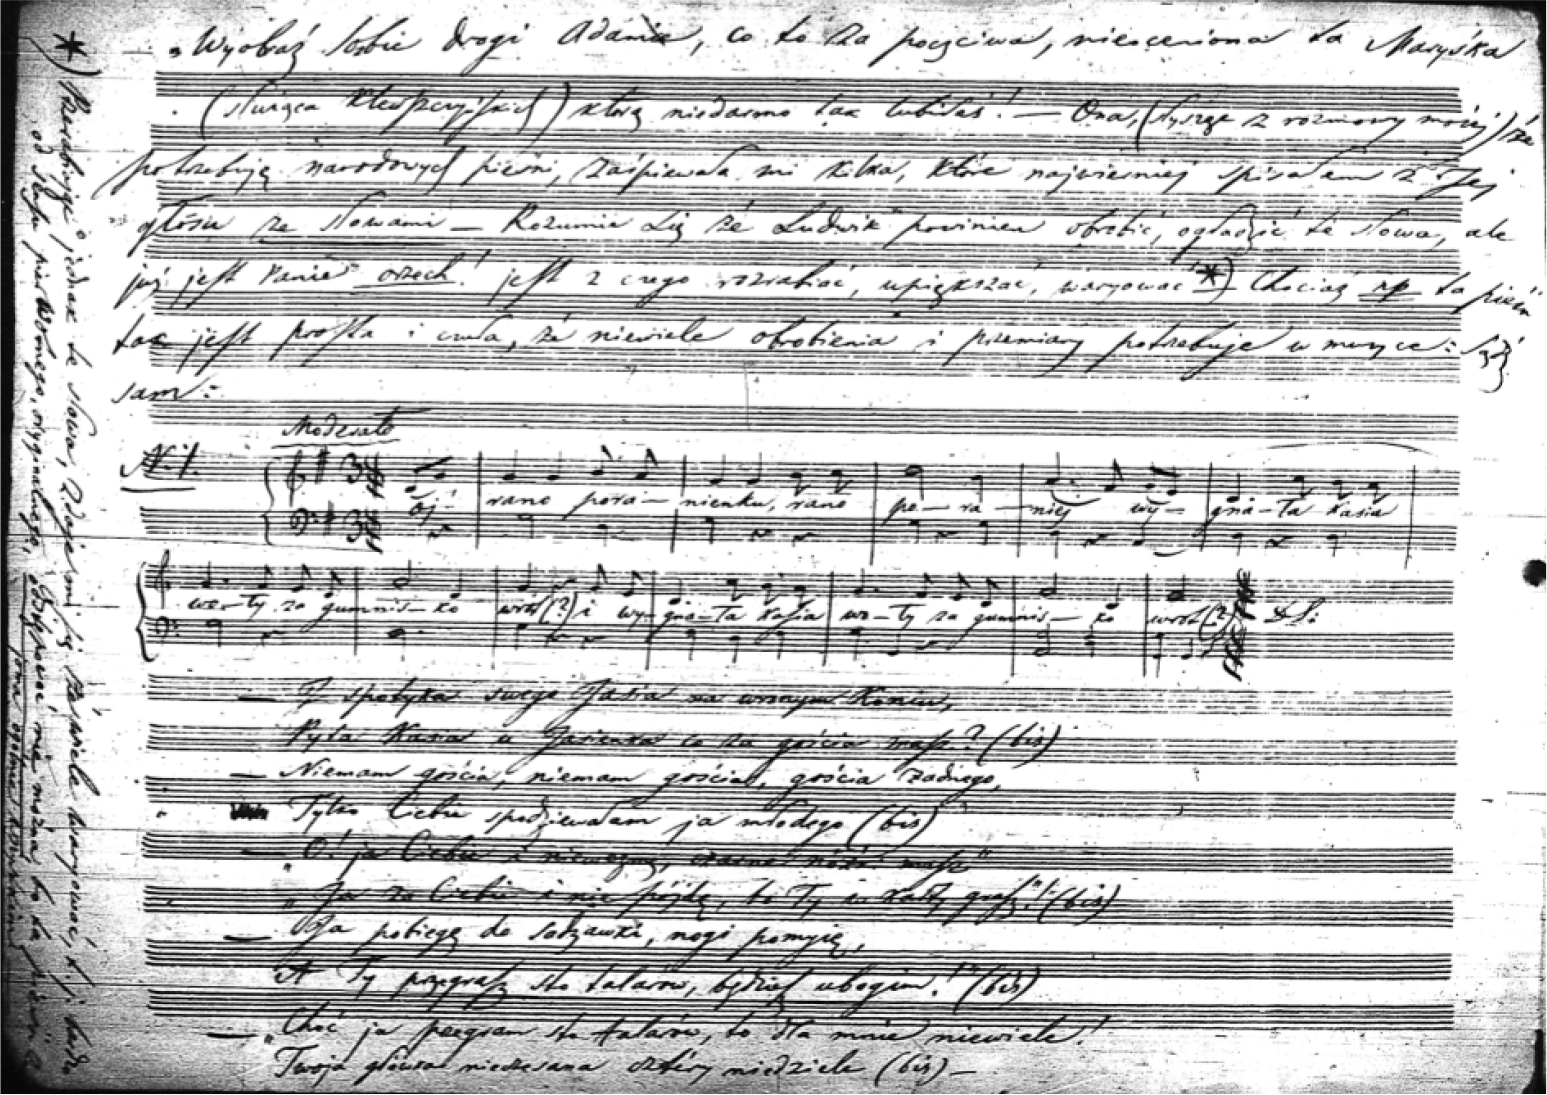 „Wyobaź sobie drogi Adamie, co to za poczciwa, nieoceniona ta Maryśka
(służąca) którą niedarmo tak lubiłeś! — Ona, (słysząc z rozmowy mojéj) że
potrzebuję narodowych pieśni, zaśpiewała mi kilka, które najwierniej spisałem z Jej
głosu ze słowami — Rozumie się że Ludwik powinien obrobić, ogładzić te słowa, ale
już jest kanie orzech! jest z czego rozrabiać, upiększać, waryować *) Chociaż np ta pieśń
tak jest prosta i czuła, że niewiele obrobienia i przemiany potrzebuje w muzyce:
sam:
Moderato
N. 1.
Oj! rano pora-nienku, rano po-ra-niej wy-gna-ła Kasia
wo-ły za gumnis-ko wrót(?) i wy-gna-ła Kasia wo-ły za gumnis-ko wrót(?)
— I spotyka swego Jasia na wronym koniu,
Pyta Kasia u Jasieńka co za gościa masz? (bis)
— Niemam gościa, niemam gościa, gościa żadnego,
Tylko Ciebie spodziewałam ja młodego (bis)
— „O! ja Ciebie i niewezmę, czarne nóżki masz"
„Ja za Ciebie i nie pójdę, bo Ty w karty grasz"! (bis)
— Ja pobiegę do sadzawki, nogi pomyię,
A Ty przegrasz sto talarów, będziesz ubogim!" (bis)
— „Choć ja przegram sto talarów, to dla mnie niewiele!
Twoja główka nieczesana cztéry niedziele (bis) —
*) Przerabiając jednak te słowa, zdaje mi się niewiele waryować, t. j.
od sensu pierwotnego, oryginalnego, odstępować nie można, bo ta pieśń